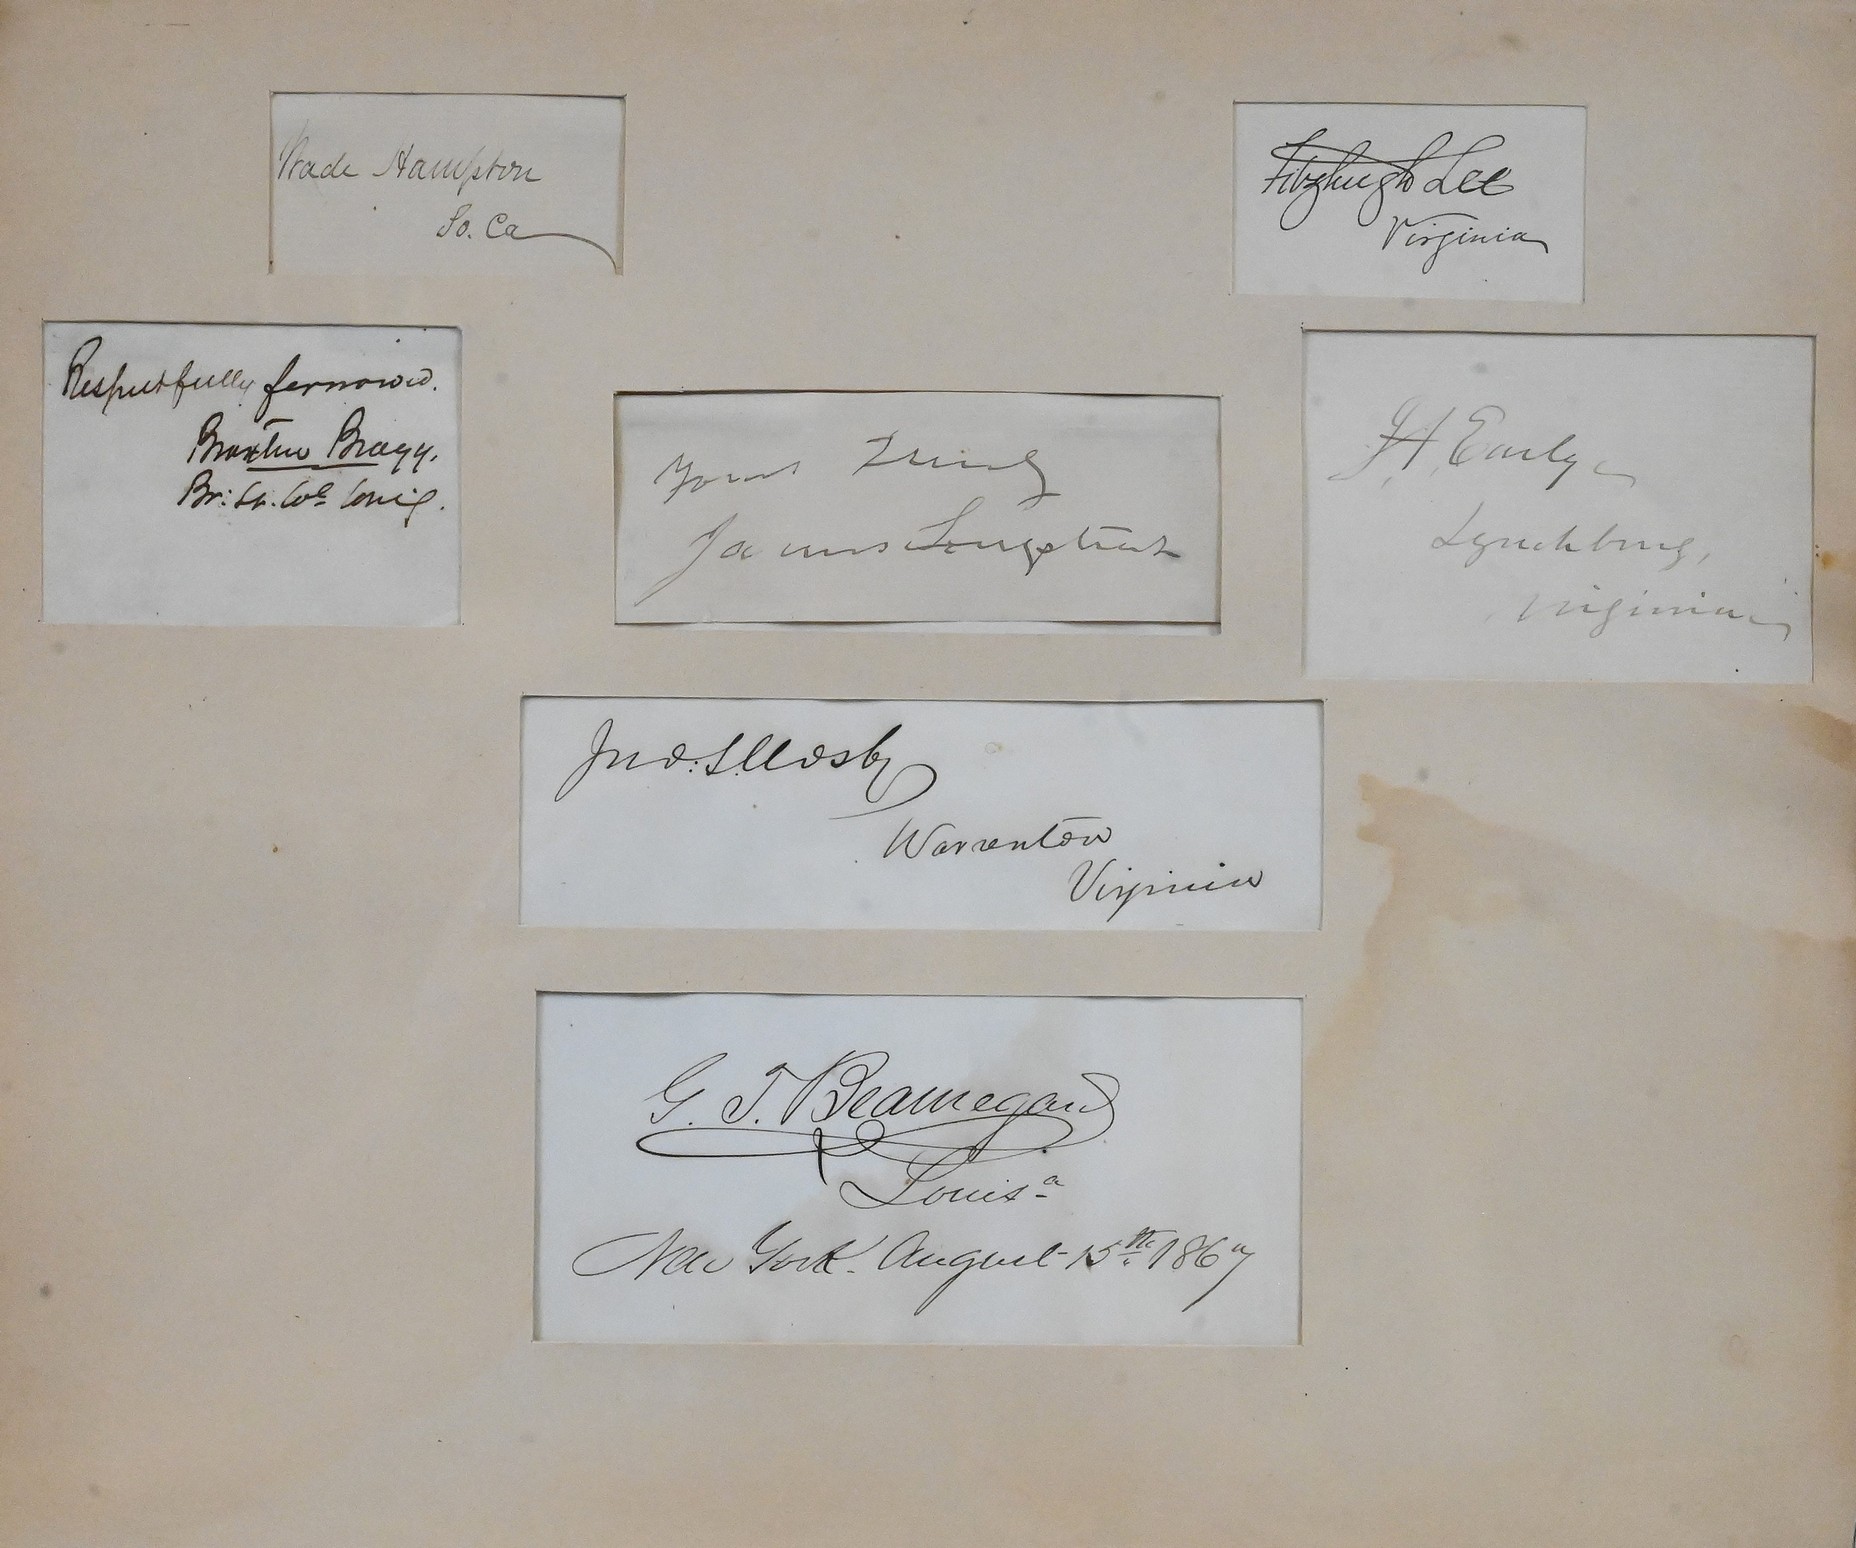 Wade Hampton
So. Ca
Fitzhugh Lee
Virginia
Respectfully forward.
Braxton Bragg.
Br:
Yours Truly
James Longstreet
JA Early
Lynchburg,
Virginia
Jno: S. Mosby
Warrenton
Virginia
G. T. Beauregard
Louisa
New York. August 15th 1867